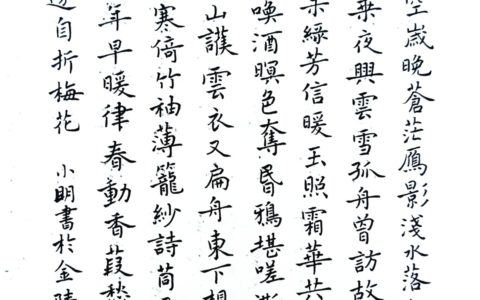 空歲晚蒼茫鴈影淺水落
乘夜興雲雪孤舟曾訪故
綠芳信暖玉照霜華共
喚酒暝色奪昏鴉堪嗟
山護雲衣又扁舟東下想
寒倚竹袖薄籠紗詩筒
年早暖律春動香葭愁
邊自折梅花 小明書於金陵